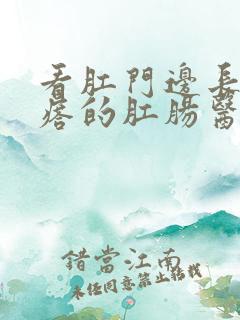 看肛門邊長
痞的肛腸醫
錯當江南
未經同意禁止轉載